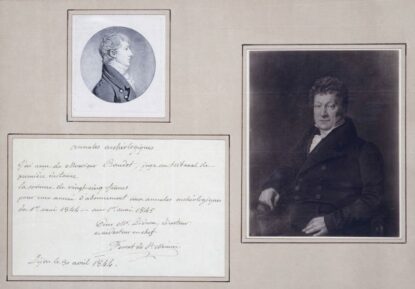 annales archéologiques
J'ai reçu de Monsieur Baudot, juge au tribunal de
première instance
la somme de vingt-cinq francs
pour une année d'abonnement aux annales archéologiques
du 1er mai 1844 — au 1er mai 1845
Pour Mr. Didron, directeur
et rédacteur en chef
Dijon le 30 avril 1844.